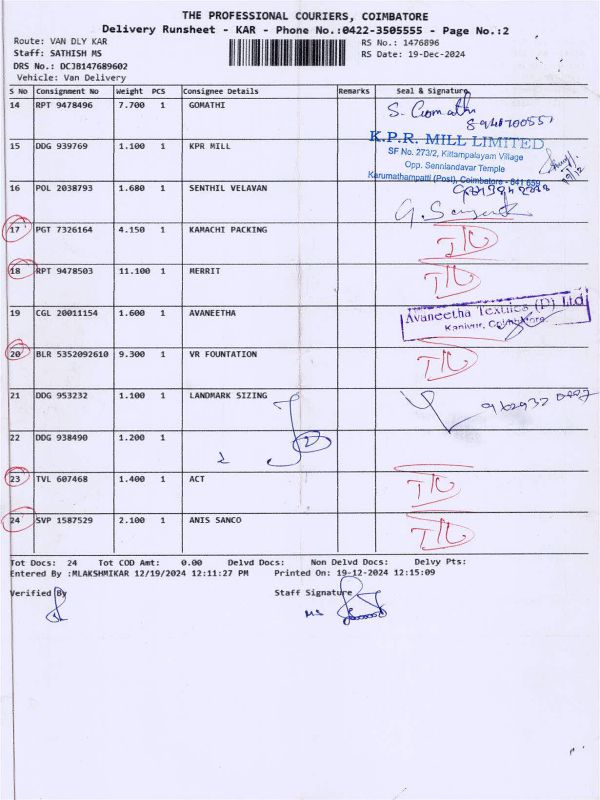 THE PROFESSIONAL COURIERS, COIMBATORE
Delivery Runsheet - KAR - Phone No.:0422-3505555 - Page No.:2
Route: VAN DLY KAR RS No.: 1476896
Staff: SATHISH MS RS Date: 19-Dec-2024
DRS No.: DCJB147689602
Vehicle: Van Delivery
S No Consignment No Weight PCS Consignee Details Remarks Seal & Signature
14 RPT 9478496 7.700 1 GOMATHI S. Gomathi
15 DDG 939769 1.100 1 KPR MILL K.P.R. MILL LIMITED
SF No. 273/2, Kittampalayam Village
Opp. Senniandavar Temple
Karumathampatti (Post), Coimbatore - 641 659
19/12
16 POL 2038793 1.680 1 SENTHIL VELAVAN
17 PGT 7326164 4.150 1 KAMACHI PACKING
18 RPT 9478503 11.100 1 MERRIT
19 CGL 20011154 1.600 1 AVANEETHA Avaneetha Textiles (P) Ltd
Kaniyur, Coimbatore.
20 BLR 5352092610 9.300 1 VR FOUNTATION
21 DDG 953232 1.100 1 LANDMARK SIZING
22 DDG 938490 1.200 1 2
23 TVL 607468 1.400 1 ACT
24 SVP 1587529 2.100 1 ANIS SANCO
Tot Docs: 24 Tot COD Amt: 0.00 Delvd Docs: Non Delvd Docs: Delvy Pts:
Entered By :MLAKSHMIKAR 12/19/2024 12:11:27 PM Printed On: 19-12-2024 12:15:09
Verified By Staff Signature
MS